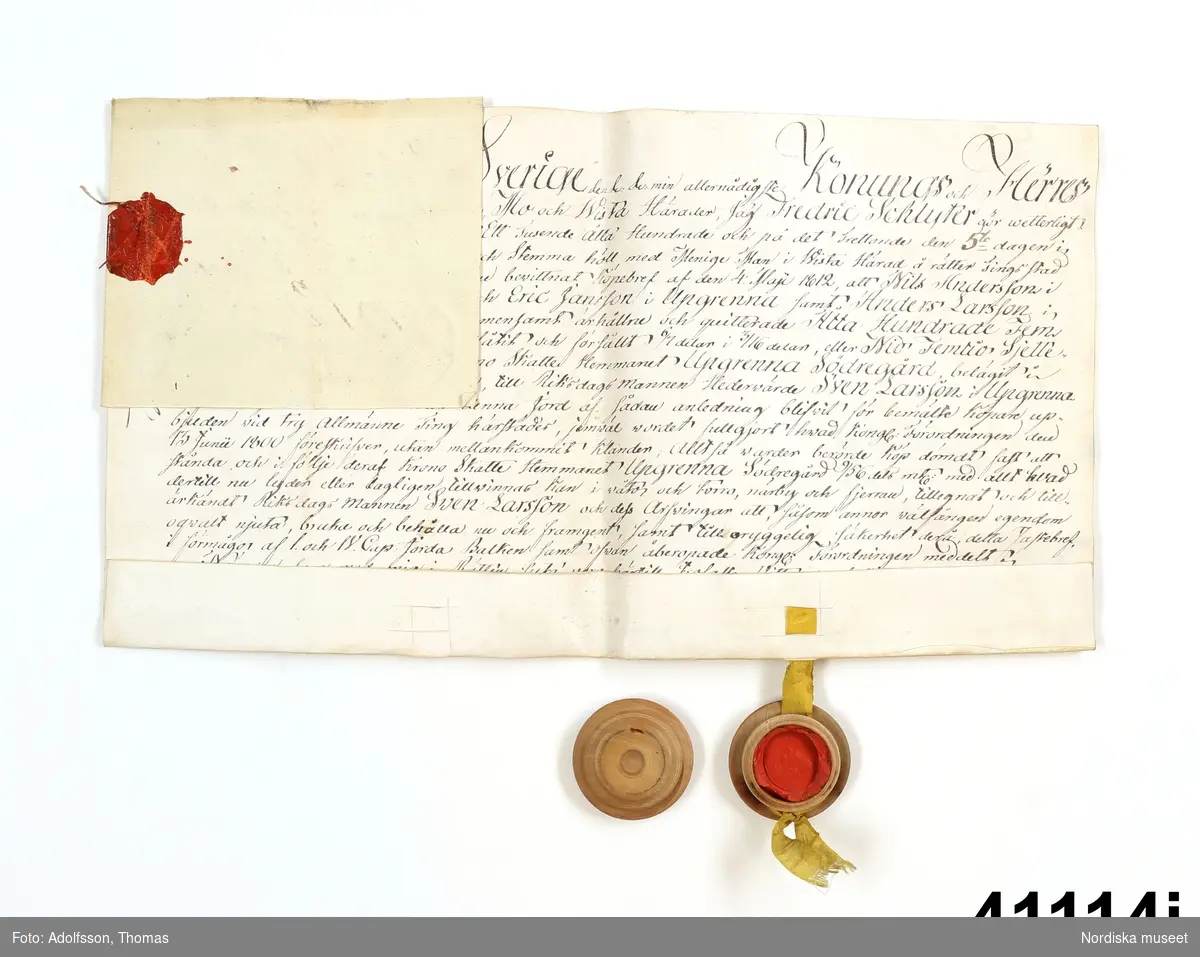 Sverige &c &c &c min allernådigste Konungs och Herres
, Mo och Wista Härader, Jag Fredric Schlyter gör wetterligt:
Ett tusende Åtta Hundrade och på det trettonde den 5te dagen i
Stemma höll med Menige Man i Wista Härad å rätter Tingsstad
bevittnat Köpebref af den 4 Maji 1812, att Nils Andersson i
Eric Jansson i Upgrenna samt Anders Larsson i
århållne och quitterade Åtta Hundrade Fem
och försålt delar i delar, eller Nio Femtio Sjette-
Skatte Hemmanet Upgrenna Södregård, belägit i
, till Riksdagsmannen Hedervärde Sven Larsson i Upgrenna
denna Jord af sådan anledning blifvit för bemälte Köpare up-
bjuden vid try Allmänne Ting härstädes, jemväl wordet fullgjort hwad Kongl. Förordningen den
13 Junii 1800 föreskrifver, utan mellankommit Klander; Alltså warder berörde Köp dömdt fast att
stånda, och i följe deraf Krono Skatte Hemmanet Upgrenna Södregård 9/56 dels mtl med allt hwad
dertill nu lyder eller lagligen tillwinnas kan i våto och torro, närby och fjerran, tillegnat och till-
ärkändt Riksdags Mannen Sven Larsson och dess Arfvingar att, såsom annor välfången egendom
oqvalt njuta, bruka och behålla nu och framgent, samt till oryggelig säkerhet derå, detta Fastebref,
i förmågo af 1. och IV Cap. Jorda Balken samt ofvan åberopade Kongl. Förordningen meddelt
41114j
Foto: Adolfsson, Thomas
Nordiska museet